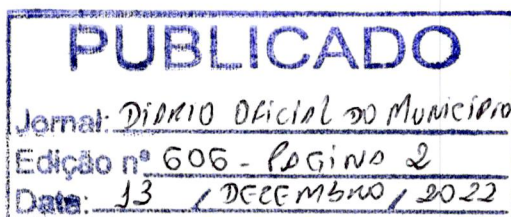 PUBLICADO
Jornal: DiÁRIO OFICIAL DO MUNICÍPIO
Edição nº 606 - PÁGINA 2
Data: 13 / DEZEMBRO / 2022